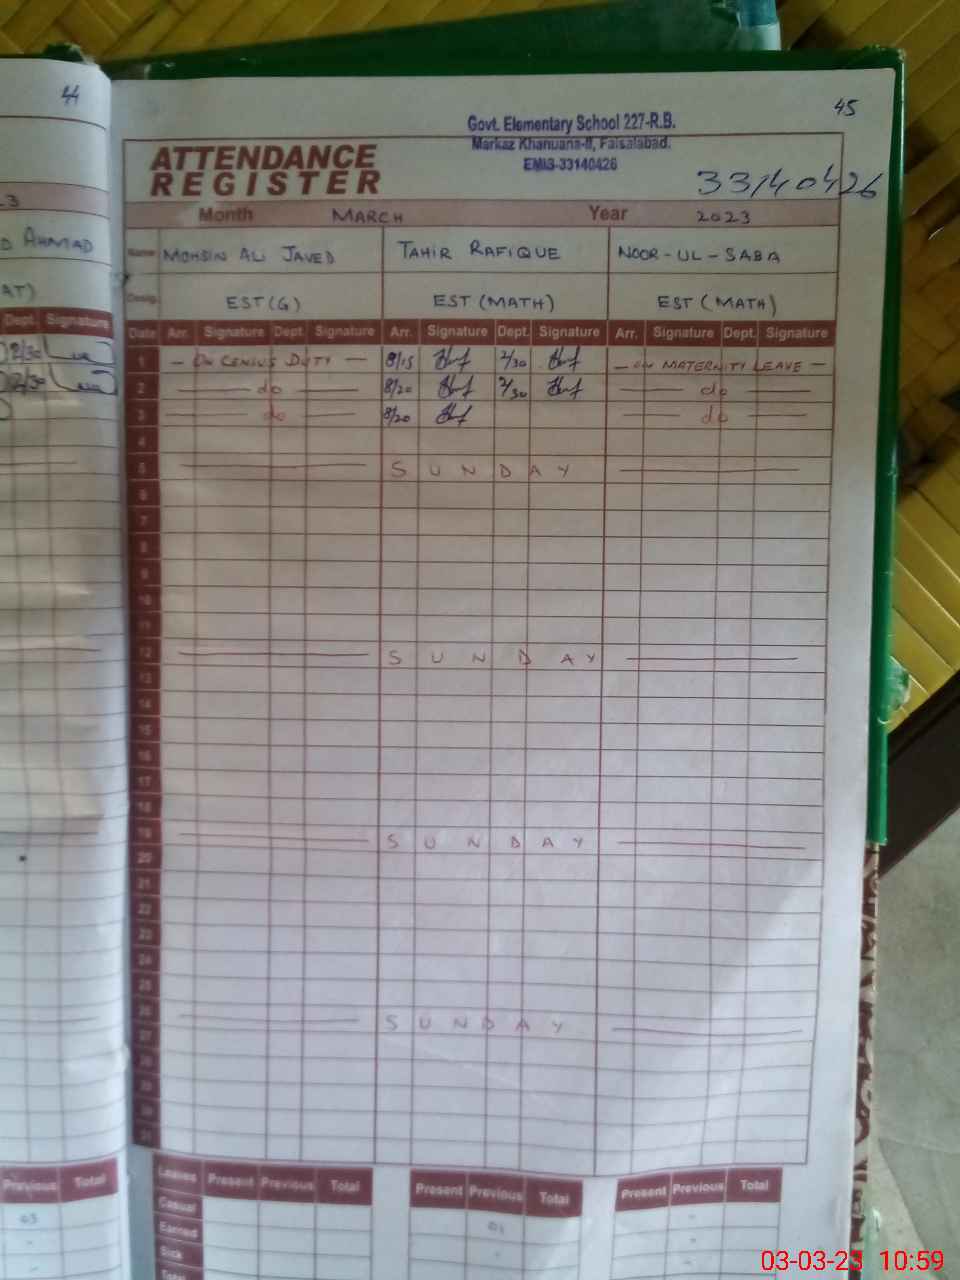 44
45
Govt. Elementary School 227-R.B.
Markaz Khanuana-II, Faisalabad.
EMIS-33140426
ATTENDANCE
REGISTER
33140426
Month MARCH Year 2023
Name MOHSIN ALI JAVED TAHIR RAFIQUE NOOR-UL-SABA
Desig. EST(G) EST (MATH) EST (MATH)
Date Arr. Signature Dept. Signature Arr. Signature Dept. Signature Arr. Signature Dept. Signature
1 - ON CENSUS DUTY - 8/15 2/30 - ON MATERNITY LEAVE -
2 do 8/20 2/30 do
3 do 8/20 do
4
5 SUNDAY
6
7
8
9
10
11
12 SUNDAY
13
14
15
16
17
18
19 SUNDAY
20
21
22
23
24
25
26 SUNDAY
27
28
29
30
31
Leaves Present Previous Total Present Previous Total Present Previous Total
Casual
Earned 01 -
Sick - -
Total
AHMAD
AT)
Dept. Signature
2/30
2/30
Previous Total
03
-
03-03-23 10:59